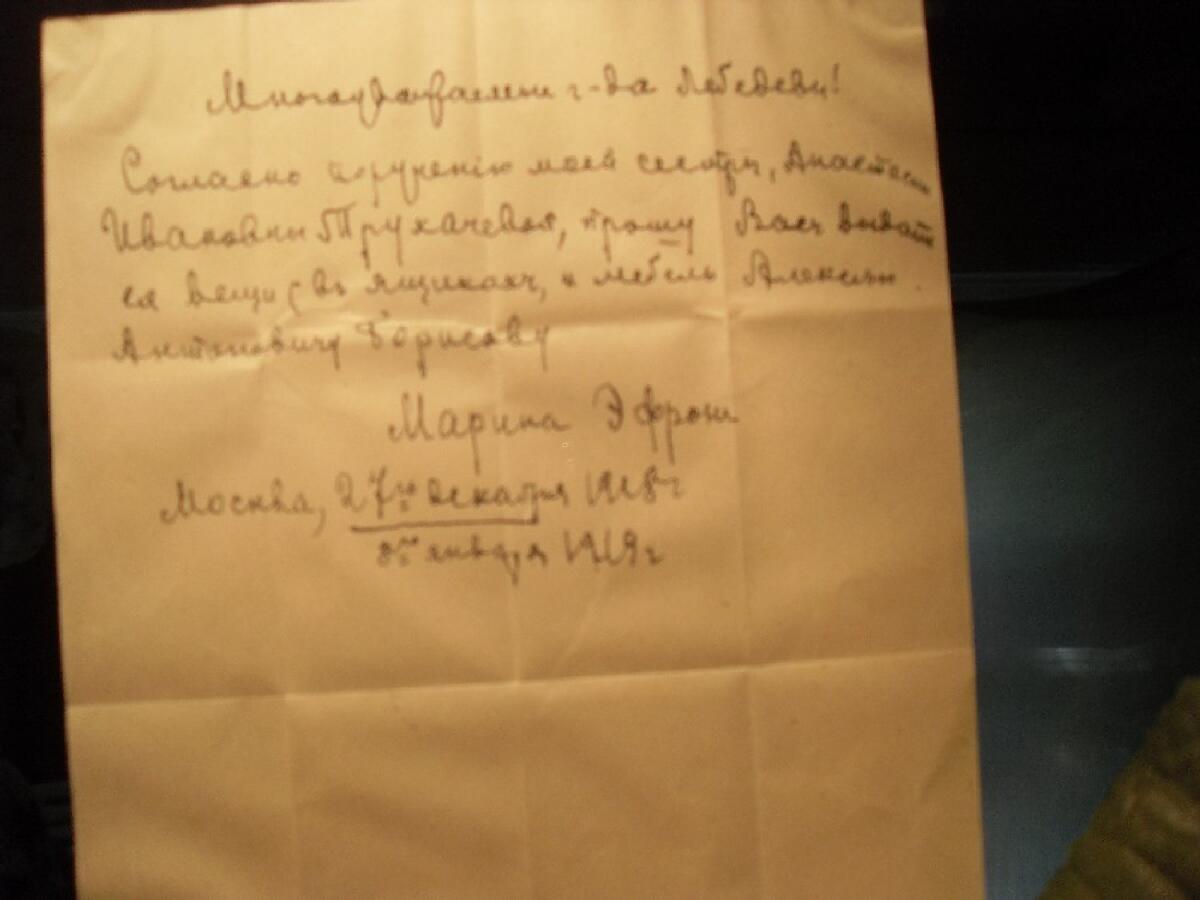 Многоуважаемые г-да Лебедевы!
Согласно порученію моей сестры, Анастасіи
Ивановны Трухачевой, прошу Васъ выдать
ея вещи (въ ящикахъ, и мебель Алексѣю
Антоновичу Борисову
Марина Эфронъ
Москва, 27го декабря 1918г
января 1919г